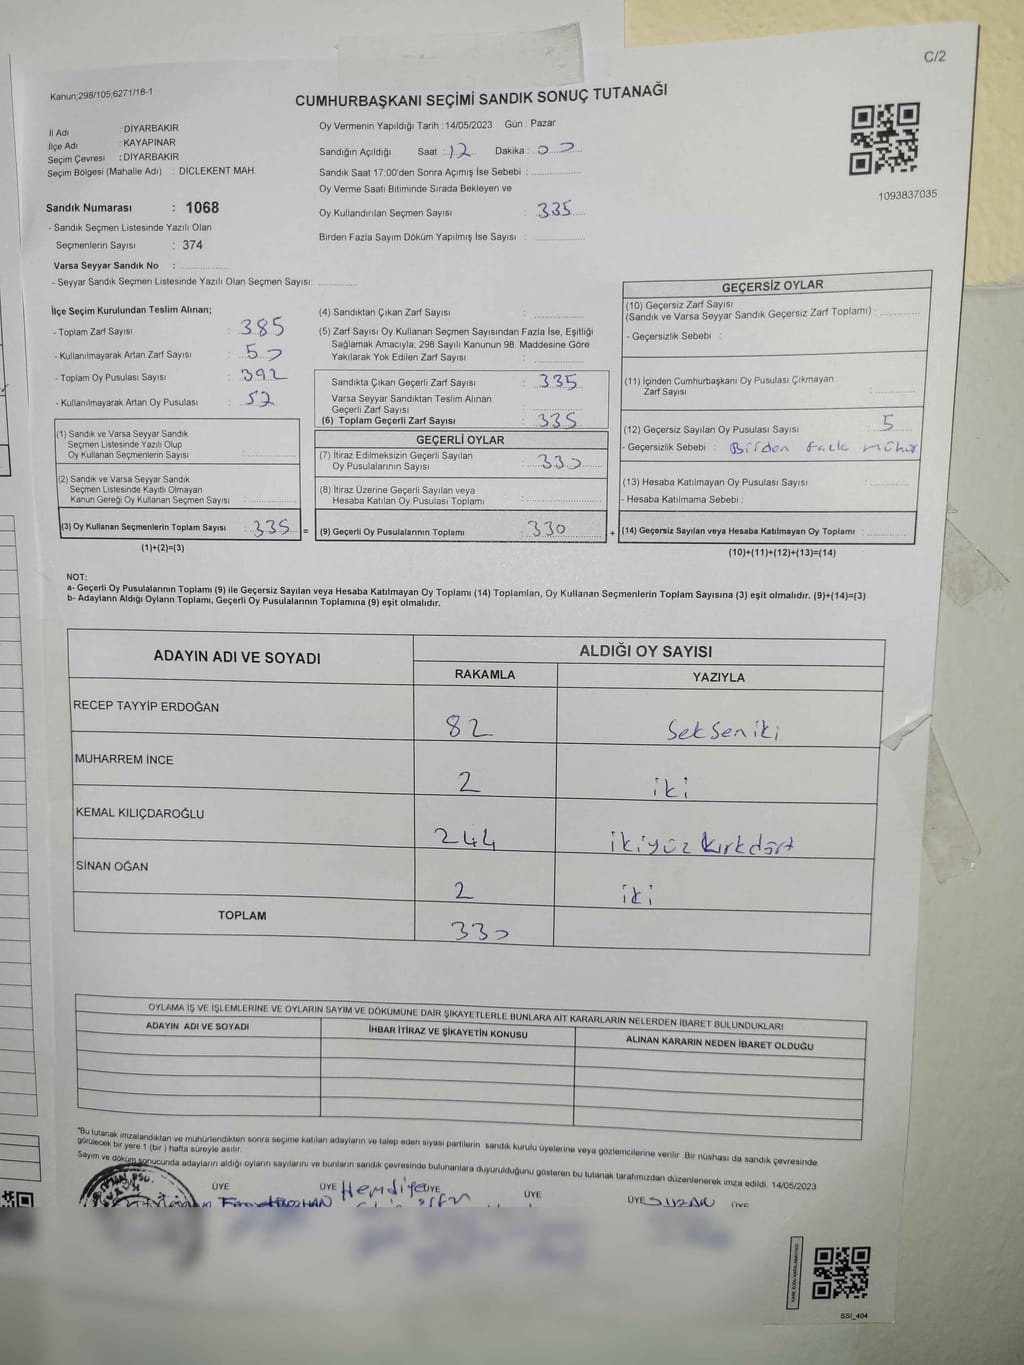 C/2
Kanun;298/105;6271/18-1
CUMHURBAŞKANI SEÇİMİ SANDIK SONUÇ TUTANAĞI
İl Adı : DİYARBAKIR
İlçe Adı : KAYAPINAR
Seçim Çevresi : DİYARBAKIR
Seçim Bölgesi (Mahalle Adı) : DİCLEKENT MAH.
Sandık Numarası : 1068
- Sandık Seçmen Listesinde Yazılı Olan
Seçmenlerin Sayısı : 374
Varsa Seyyar Sandık No :
- Seyyar Sandık Seçmen Listesinde Yazılı Olan Seçmen Sayısı:
Oy Vermenin Yapıldığı Tarih : 14/05/2023 Gün : Pazar
Sandığın Açıldığı Saat : 12 Dakika : 00
Sandık Saat 17:00'den Sonra Açımış İse Sebebi :
Oy Verme Saati Bitiminde Sırada Bekleyen ve
Oy Kullandırılan Seçmen Sayısı : 335
Birden Fazla Sayım Döküm Yapılmış İse Sayısı :
1093837035
İlçe Seçim Kurulundan Teslim Alınan;
- Toplam Zarf Sayısı : 385
- Kullanılmayarak Artan Zarf Sayısı : 50
- Toplam Oy Pusulası Sayısı : 392
- Kullanılmayarak Artan Oy Pusulası : 52
(1) Sandık ve Varsa Seyyar Sandık
Seçmen Listesinde Yazılı Olup
Oy Kullanan Seçmenlerin Sayısı :
(2) Sandık ve Varsa Seyyar Sandık
Seçmen Listesinde Kayıtlı Olmayan
Kanun Gereği Oy Kullanan Seçmen Sayısı :
(3) Oy Kullanan Seçmenlerin Toplam Sayısı : 335 =
(1)+(2)=(3)
(4) Sandıktan Çıkan Zarf Sayısı :
(5) Zarf Sayısı Oy Kullanan Seçmen Sayısından Fazla İse, Eşitliği
Sağlamak Amacıyla; 298 Sayılı Kanunun 98. Maddesine Göre
Yakılarak Yok Edilen Zarf Sayısı :
Sandıkta Çıkan Geçerli Zarf Sayısı : 335
Varsa Seyyar Sandıktan Teslim Alınan
Geçerli Zarf Sayısı :
(6) Toplam Geçerli Zarf Sayısı : 335
GEÇERLİ OYLAR
(7) İtiraz Edilmeksizin Geçerli Sayılan
Oy Pusulalarının Sayısı : 330
(8) İtiraz Üzerine Geçerli Sayılan veya
Hesaba Katılan Oy Pusulası Toplamı :
(9) Geçerli Oy Pusulalarının Toplamı : 330 +
GEÇERSİZ OYLAR
(10) Geçersiz Zarf Sayısı
(Sandık ve Varsa Seyyar Sandık Geçersiz Zarf Toplamı) :
- Geçersizlik Sebebi :
(11) İçinden Cumhurbaşkanı Oy Pusulası Çıkmayan
Zarf Sayısı :
(12) Geçersiz Sayılan Oy Pusulası Sayısı : 5
- Geçersizlik Sebebi : Birden
(13) Hesaba Katılmayan Oy Pusulası Sayısı :
- Hesaba Katılmama Sebebi :
(14) Geçersiz Sayılan veya Hesaba Katılmayan Oy Toplamı :
(10)+(11)+(12)+(13)=(14)
NOT:
a- Geçerli Oy Pusulalarının Toplamı (9) ile Geçersiz Sayılan veya Hesaba Katılmayan Oy Toplamı (14) Toplamları, Oy Kullanan Seçmenlerin Toplam Sayısına (3) eşit olmalıdır. (9)+(14)=(3)
b- Adayların Aldığı Oyların Toplamı, Geçerli Oy Pusulalarının Toplamına (9) eşit olmalıdır.
ADAYIN ADI VE SOYADI ALDIĞI OY SAYISI
RAKAMLA YAZIYLA
RECEP TAYYİP ERDOĞAN 82 Seksen iki
MUHARREM İNCE 2 iki
KEMAL KILIÇDAROĞLU 244 ikiyüz kırkdört
SİNAN OĞAN 2 iki
TOPLAM 330
OYLAMA İŞ VE İŞLEMLERİNE VE OYLARIN SAYIM VE DÖKÜMÜNE DAİR ŞİKAYETLERLE BUNLARA AİT KARARLARIN NELERDEN İBARET BULUNDUKLARI
ADAYIN ADI VE SOYADI İHBAR İTİRAZ VE ŞİKAYETİN KONUSU ALINAN KARARIN NEDEN İBARET OLDUĞU
*Bu tutanak imzalandıktan ve mühürlendikten sonra seçime katılan adayların ve talep eden siyasi partilerin sandık kurulu üyelerine veya gözlemcilerine verilir. Bir nüshası da sandık çevresinde
görülecek bir yere 1 (bir ) hafta süreyle asılır.
Sayım ve döküm sonucunda adayların aldığı oyların sayılarını ve bunların sandık çevresinde bulunanlara duyurulduğunu gösteren bu tutanak tarafımızdan düzenlenerek imza edildi. 14/05/2023
ÜYE ÜYE ÜYE ÜYE ÜYE ÜYE
Hemdiye
SSİ_404